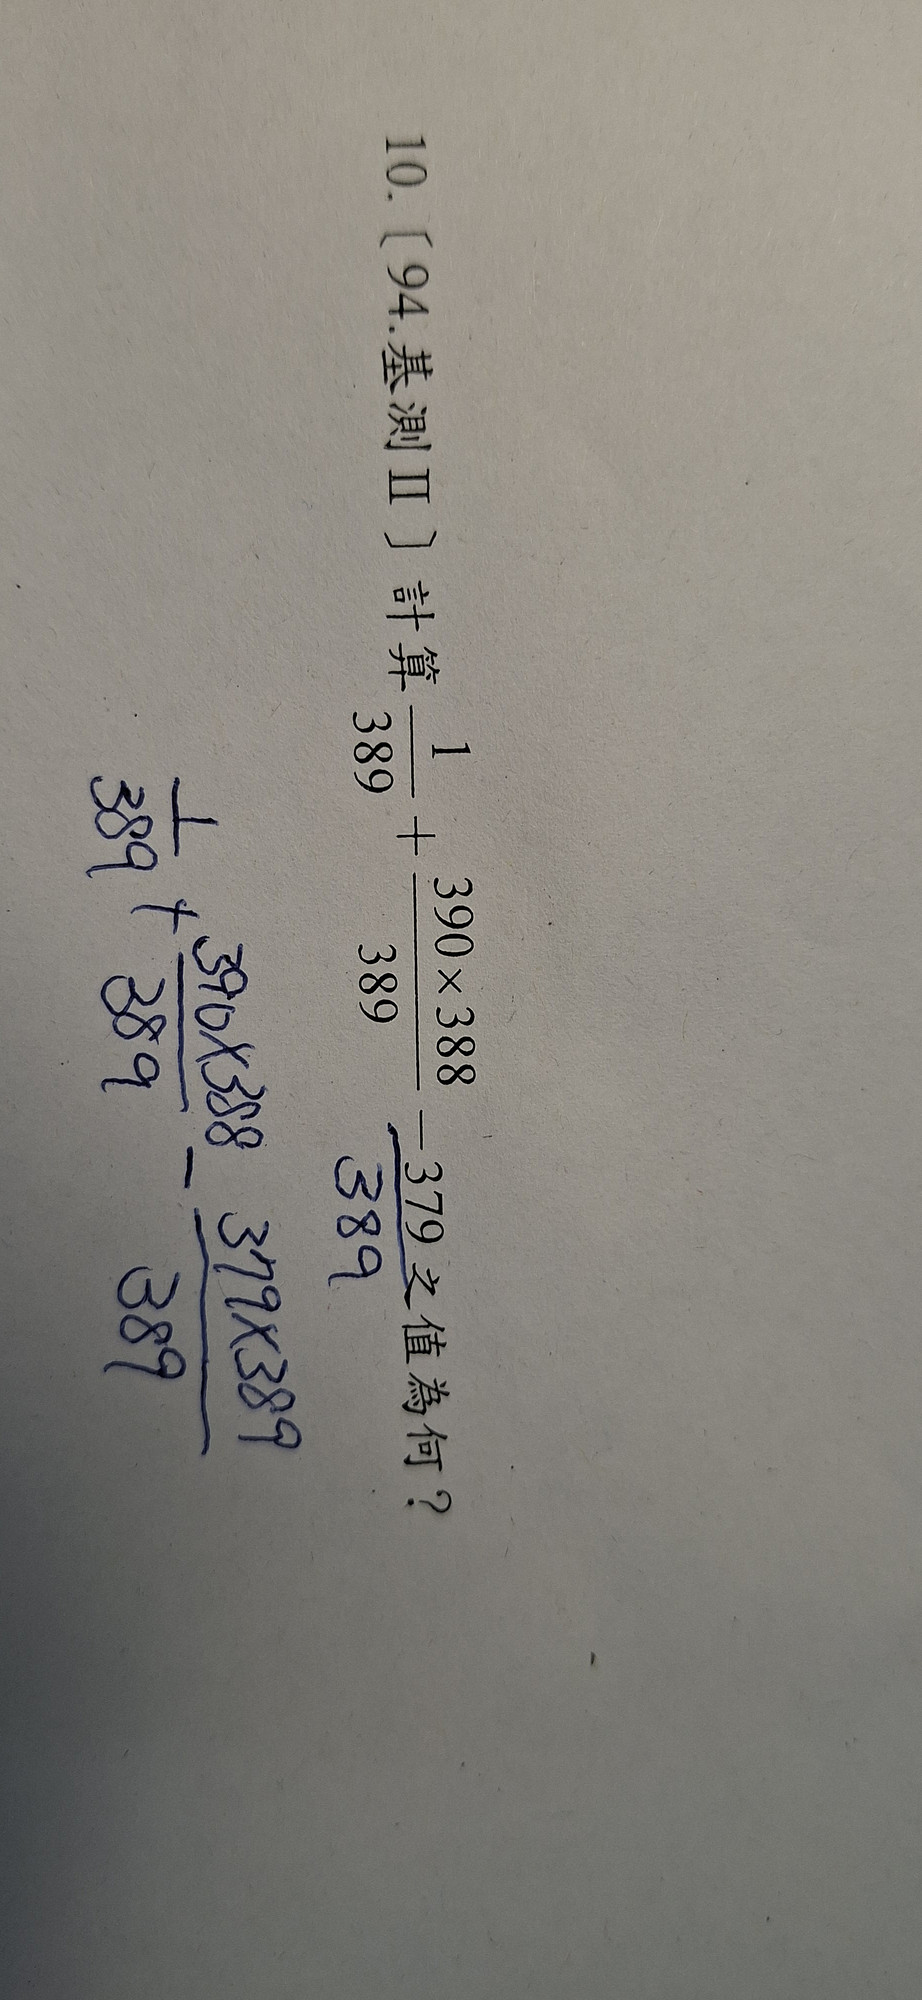 10.〔94.基測Ⅱ〕計算 1/389 + 390×388/389 －379之值為何？
389
1/389 + 390×388/389 - 379×389/389